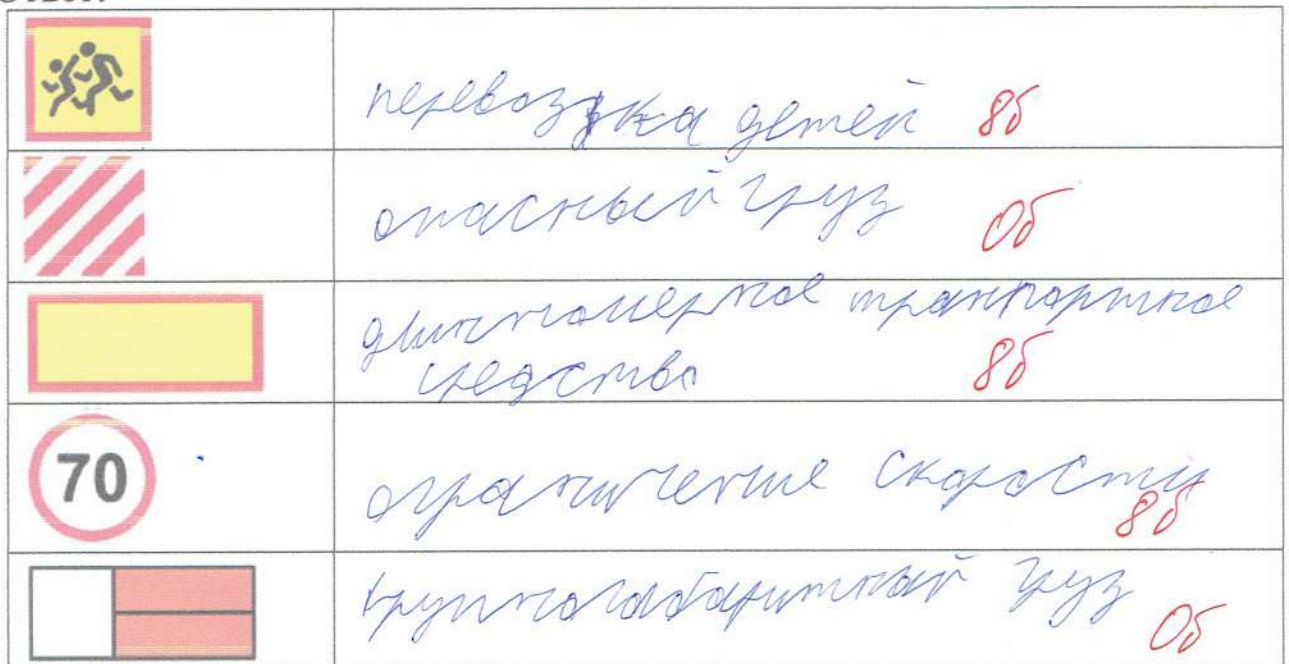 перевозка детей 8б
опасный груз 0б
длинномерное транспортное
средство 8б
70
ограничение скорости 8б
крупногабаритный груз 0б